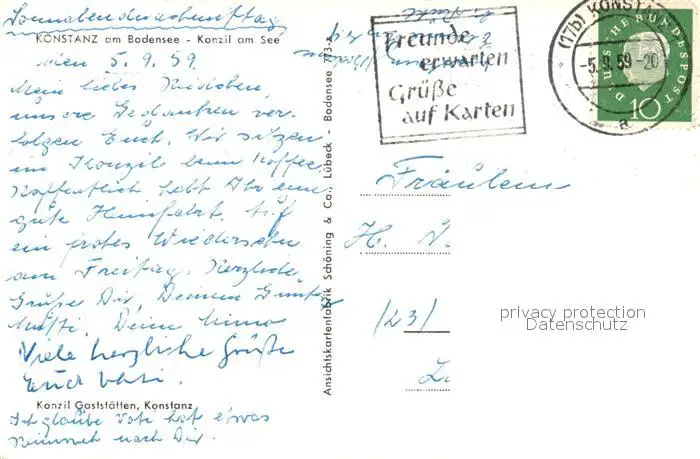 Sonnabendnachmittag
KONSTANZ am Bodensee - Konzil am See
5.9.59.
Mein liebes
unsere Gedanken ver-
folgen Euch. Wir sitzen
im Konzil beim Kaffee.
Hoffentlich habt Ihr eine
gute Heimfahrt. Auf
ein frohes Wiedersehen
am Freitag. Herzliche
Grüße Dir, Deinen
Mutti, Deine
Viele herzliche Grüße
Euch Vati.
Konzil Gaststätten, Konstanz
Ich glaube hat etwas
Heimweh nach Dir.
Ansichtskartenfabrik Schöning & Co., Lübeck - Bodensee 773-A
Freunde
erwarten
Grüße
auf Karten
(17b) KONSTANZ
-5.9.59-20
a
DEUTSCHE BUNDESPOST
10
Fräulein
H.
(23)
privacy protection
Datenschutz